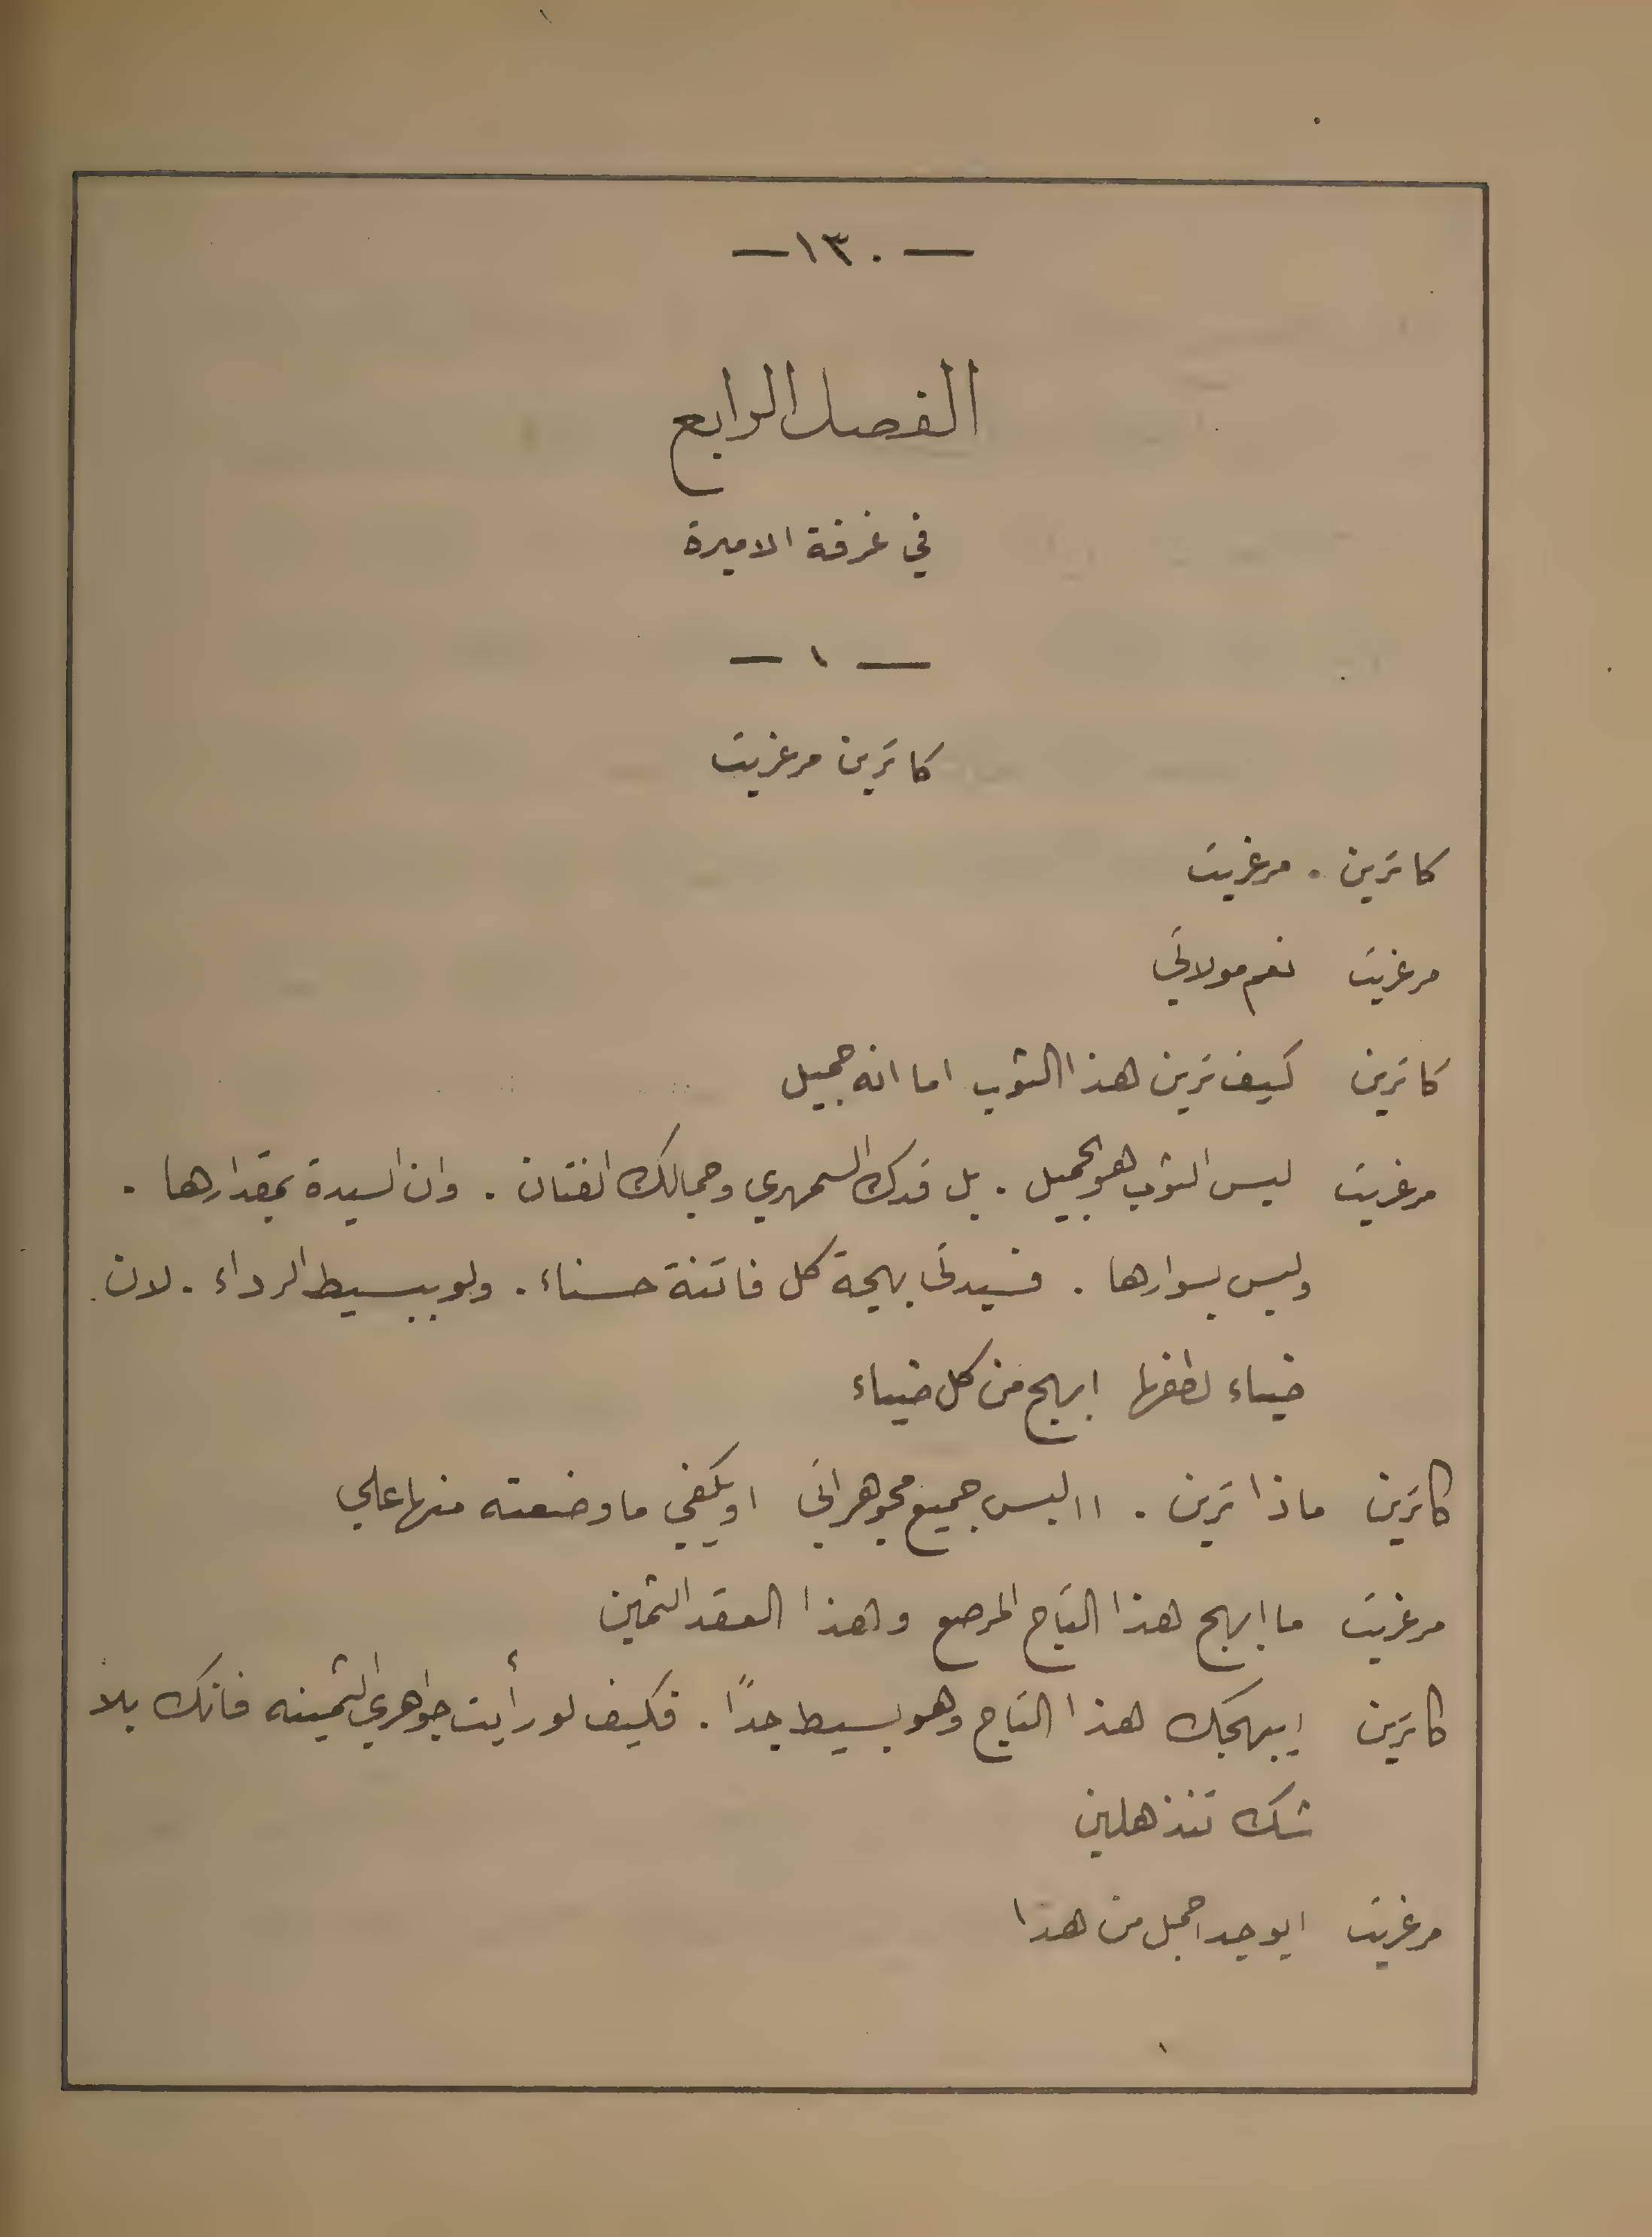 — ١٣٠ —
الفصل الرابع
في غرفة الاميرة
— ١ —
كاترين مرغريت
كاترين . مرغريت
مرغريت نعم مولاتي
كاترين كيف ترين هذا الثوب اما انه جميل
مرغريت ليس الثوب هو الجميل . بل قدك السمهري وجمالك الفتان . وان السيدة بمقدارها .
وليس بسوارها . فسيدتي بهجة كل فاتنة حسناء . ولو ببسيط الرداء . لان
ضياء لطفها ابهج من كل ضياء
كاترين ماذا ترين . االبس جميع مجوهراتي او يكفي ما وضعته منها علي
مرغريت ما ابهج هذا التاج المرصع وهذا العقد الثمين
كاترين ايبهجك هذا التاج وهو بسيط جدًا . فكيف لو رأيت جواهري الثمينه فانك بلا
شك تنذهلين
مرغريت ايوجد اجمل من هدا